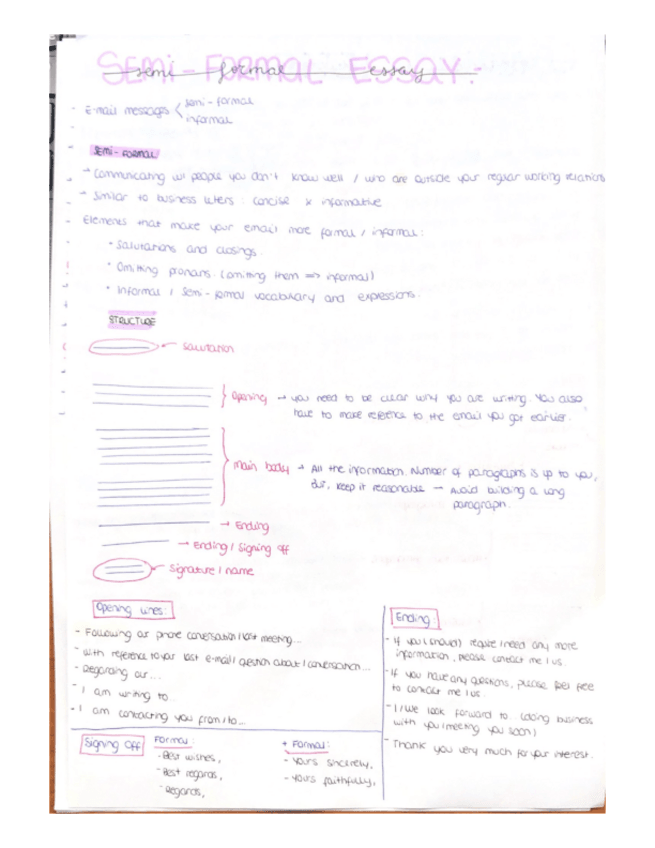 SEMI-FORMAL ESSAY.
semi-formal essay
- E-mail messages < semi-formal
informal
SEMI-FORMAL
- Communicating w/ people you don't know well / who are outside your regular working relations
- Similar to business letters: concise & informative
- Elements that make your email more formal / informal:
• Salutations and closings.
• Omitting pronouns. (omitting them => informal)
• Informal / Semi-formal vocabulary and expressions.
STRUCTURE
Salutation
Opening → you need to be clear why you are writing. You also
have to make reference to the email you got earlier.
Main body → All the information. Number of paragraphs is up to you,
but, keep it reasonable → Avoid building a long
paragraph.
→ Ending
→ Ending / Signing off
Signature / name
Opening lines:
- Following our phone conversation / last meeting...
- With reference to your last e-mail / question about / conversation...
- Regarding our...
- I am writing to
- I am contacting you from / to...
Ending:
- If you (should) require / need any more
information, please contact me / us.
- If you have any questions, please feel free
to contact me / us.
- I / We look forward to (doing business
with you / meeting you soon)
- Thank you very much for your interest.
Signing off
Formal:
- Best wishes,
- Best regards,
- Regards,
+ Formal:
- Yours sincerely,
- Yours faithfully,